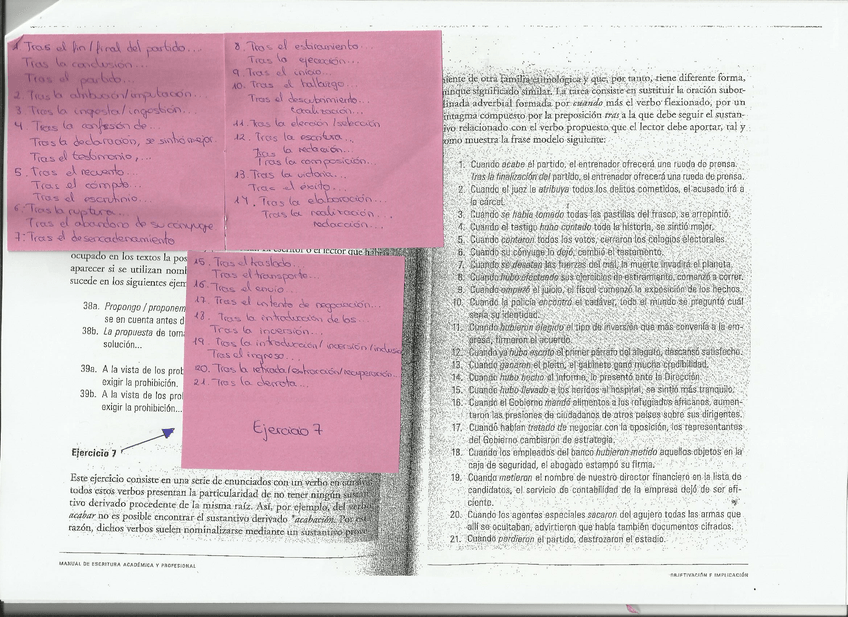 1. Tras el fin/final del partido...
Tras la conclusión...
Tras el partido...
2. Tras la atribución/imputación...
3. Tras la ingesta/ingestión...
4. Tras la confesión de...
Tras la declaración, se sintió mejor.
Tras el testimonio,...
5. Tras el recuento...
Tras el cómputo...
Tras el escrutinio...
6. Tras la ruptura...
Tras el abandono de su cónyuge
7. Tras el desencadenamiento
8. Tras el estiramiento...
Tras la ejecución...
9. Tras el inicio...
10. Tras el hallazgo...
Tras el descubrimiento...
localización...
11. Tras la elección/selección
12. Tras la escritura...
Tras la redacción...
Tras la composición...
13. Tras la victoria...
Tras el éxito...
14. Tras la elaboración...
Tras la realización...
redacción...
15. Tras el traslado...
Tras el transporte...
16. Tras el envío...
17. Tras el intento de negociación...
18. Tras la introducción de los...
Tras la inversión...
19. Tras la introducción/inserción/inclusión
Tras el ingreso...
20. Tras la retirada/extracción/recuperación...
21. Tras la derrota...
Ejercicio 7
ocupado en los textos la pos
aparecer si se utilizan nomi
sucede en los siguientes ejem
38a. Propongo / proponem
se en cuenta antes d
38b. La propuesta de tom
solución...
39a. A la vista de los prob
exigir la prohibición.
39b. A la vista de los prob
exigir la prohibición...
Ejercicio 7
Este ejercicio consiste en una serie de enunciados con un verbo en cursiva
todos estos verbos presentan la particularidad de no tener ningún sustan
tivo derivado procedente de la misma raíz. Así, por ejemplo, del verbo
acabar no es posible encontrar el sustantivo derivado *acabación. Por esta
razón, dichos verbos suelen nominalizarse mediante un sustantivo prove
MANUAL DE ESCRITURA ACADÉMICA Y PROFESIONAL
niente de otra familia etimológica y que, por tanto, tiene diferente forma,
unque significado similar. La tarea consiste en sustituir la oración subor
dinada adverbial formada por cuando más el verbo flexionado, por un
intagma compuesto por la preposición tras a la que debe seguir el sustan
ivo relacionado con el verbo propuesto que el lector debe aportar, tal y
omo muestra la frase modelo siguiente:
1. Cuando acabe el partido, el entrenador ofrecerá una rueda de prensa.
Tras la finalización del partido, el entrenador ofrecerá una rueda de prensa.
2. Cuando el juez le atribuya todos los delitos cometidos, el acusado irá a
la cárcel.
3. Cuando se había tomado todas las pastillas del frasco, se arrepintió.
4. Cuando el testigo hubo contado toda la historia, se sintió mejor.
5. Cuando contaron todos los votos, cerraron los colegios electorales.
6. Cuando su cónyuge lo dejó, cambió el testamento.
7. Cuando se desatan las fuerzas del mal, la muerte invadirá el planeta.
8. Cuando hubo efectuado sus ejercicios de estiramiento, comenzó a correr.
9. Cuando empezó el juicio, el fiscal comenzó la exposición de los hechos.
10. Cuando la policía encontró el cadáver, todo el mundo se preguntó cuál
sería su identidad.
11. Cuando hubieron elegido el tipo de inversión que más convenía a la em-
presa, firmaron el acuerdo.
12. Cuando ya hubo escrito el primer párrafo del alegato, descansó satisfecho.
13. Cuando ganaron el pleito, el gabinete ganó mucha credibilidad.
14. Cuando hubo hecho el informe, lo presentó ante la Dirección.
15. Cuando hubo llevado a los heridos al hospital, se sintió más tranquilo.
16. Cuando el Gobierno mandó alimentos a los refugiados africanos, aumen-
taron las presiones de ciudadanos de otros países sobre sus dirigentes.
17. Cuando habían tratado de negociar con la oposición, los representantes
del Gobierno cambiaron de estrategia.
18. Cuando los empleados del banco hubieron metido aquellos objetos en la
caja de seguridad, el abogado estampó su firma.
19. Cuando metieron el nombre de nuestro director financiero en la lista de
candidatos, el servicio de contabilidad de la empresa dejó de ser efi-
ciente.
20. Cuando los agentes especiales sacaron del agujero todas las armas que
allí se ocultaban, advirtieron que había también documentos cifrados.
21. Cuando perdieron el partido, destrozaron el estadio.
OBJETIVACIÓN E IMPLICACIÓN